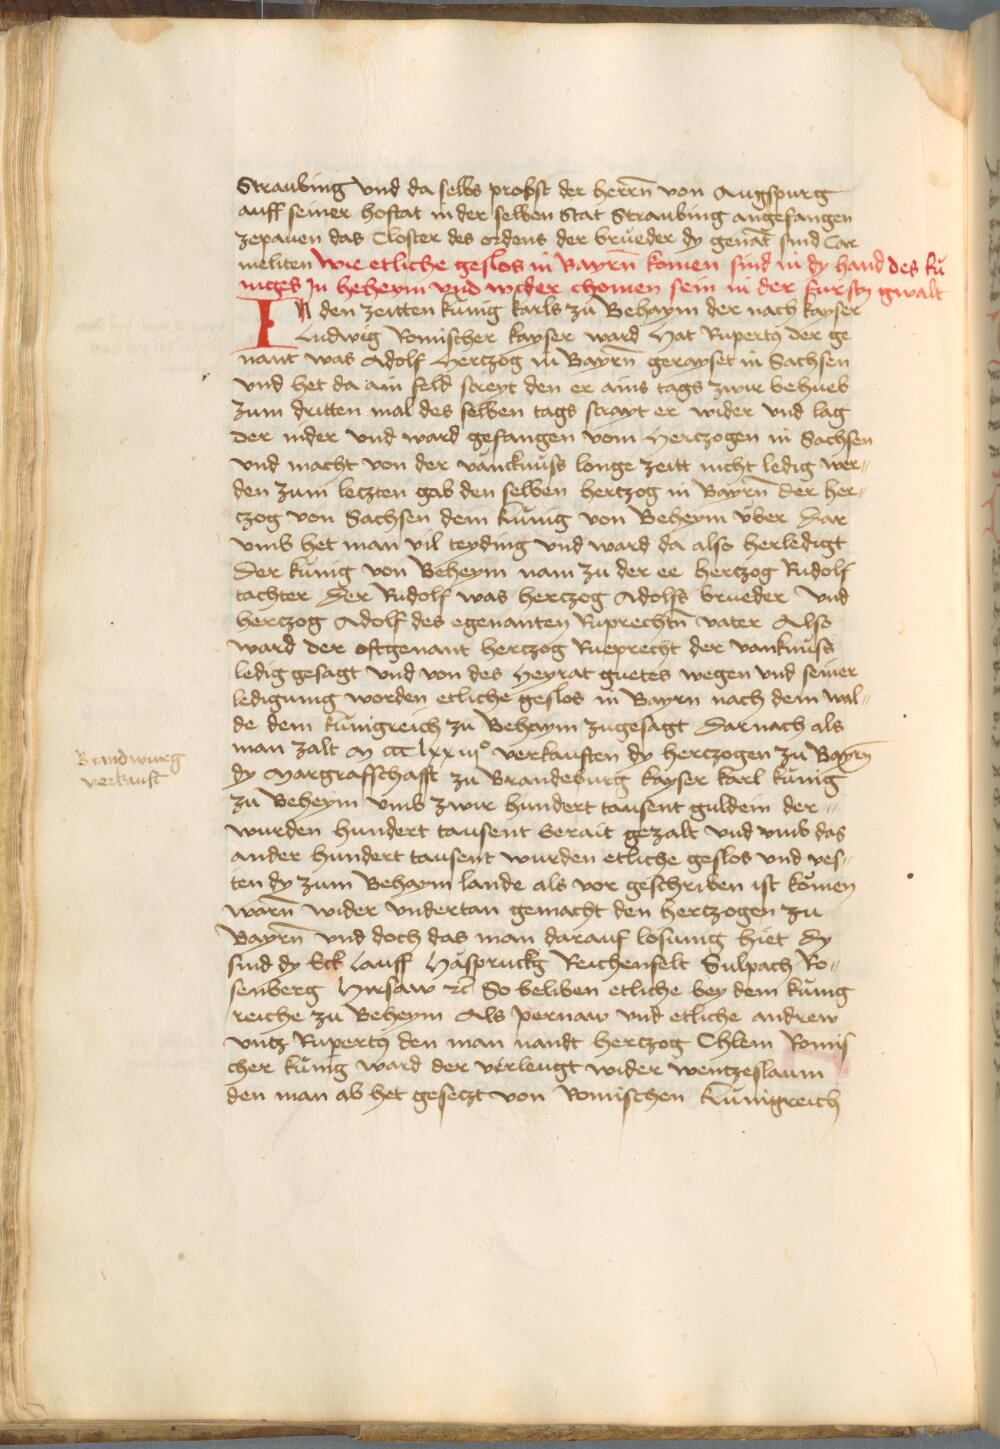 Straubing vnd da selbs probst der herrn̄ von Augspurg
auff seiner hofstat in der selben Stat Straubing angefangen
zepauen das Closter des ordens der brueder dy genāt sind Car
meliten wie etliche geslos in Bayrn̄ komen sind in dy hand des kü
niges In beheym vnd wider chomen sein in der fursten gwalt
In den zeitten kunig karls zu Behaym der nach kayser
Ludwig Romischer kayser ward Hat Rupertus der ge
nant was Adolf Hertzog in Bayrn̄ gerayset in Sachsen
vnd het da ain feld streyt den er ains tags zwir behueb
zum dritten mal des selben tags strayt er wider vnd lag
der nider vnd ward gefangen vom Hertzogen in Sachsen
vnd macht von der vancknuss lange zeitt nicht ledig wer
den zum leczten gab den selben hertzog in Bayrn̄ der her
czog von Sachsen dem kunig von Beheym über Dar
vmb het man vil teyding vnd ward da also herledigt
Der kunig von Beheym nam zu der ee hertzog Rudolf
tachter Der Rudolf was hertzog Adolfs brueder vnd
hertzog Adolf des egenanten Ruprechtn̄ vater Also
ward der oftgenant hertzog Rueprecht der vanknuss
ledig gesagt vnd von des Heyrat guetes wegen vnd seiner
ledigung worden etliche geslos in Bayrn nach dem wal
de dem kunigreich zu Behaym zugesagt Darnach als
man zalt M ccc lxxiii° verkauften dy hertzogen zu Bayrn̄
Brandwurg
verkauft
dy Margraffschafft zu Brandeburg kayser karl kunig
zu Beheym vmb zwir hundert tausent guldein der
wurden hundert tausent berait gezalt vnd vmb das
ander hundert tausent wurden etliche geslos vnd ves
ten dy zum Behaym lande als vor geschriben ist komen
warn̄ wider vndertan gemacht den hertzogen zu
Bayrn̄ vnd doch das man darauf losung hiet Dy
sind dy Eck Lauff Haspruckg Reichenselt Sulpach Ro
senberg Hirsaw etc So beliben etliche bey dem kunig
reiche zu Beheym Als pernaw vnd etliche andrew
vntz Rupertus den man nandt hertzog Chlem Romis
cher kunig ward der verleugt wider wentzeslaum
den man ab het gesetzt von Romischen kunigreich